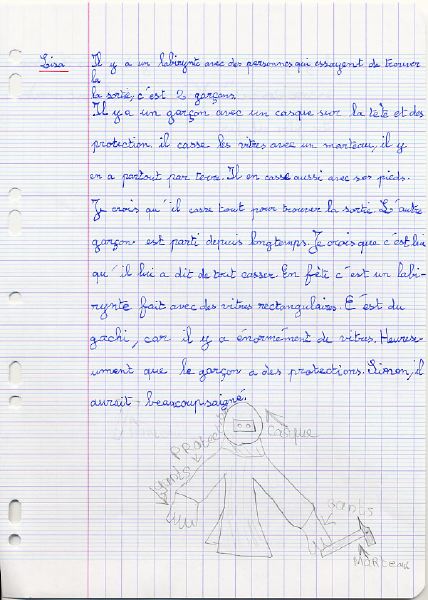 Lisa
Il y a un labirynte avec des personnes qui essayent de trouver
la
la sortie, c'est 2 garçons.
Il y a un garçon avec un casque sur la tête et des
protection, il casse les vitres avec un marteau, il y
en a partout par terre. Il en casse aussi avec ses pieds.
Je crois qu'il casse tout pour trouver la sortie. L'autre
garçon est parti depuis longtemps. Je crois que c'est lui
qu'il lui a dit de tout casser. En fête c'est un labi-
rynte fait avec des vitres rectangulaires. C'est du
gachi, car il y a énormément de vitres. Heureus-
ument que le garçon a des protections. Sionon, il
aurait beaucoup saigné.
casque
Protec
gants
gants
Marteau